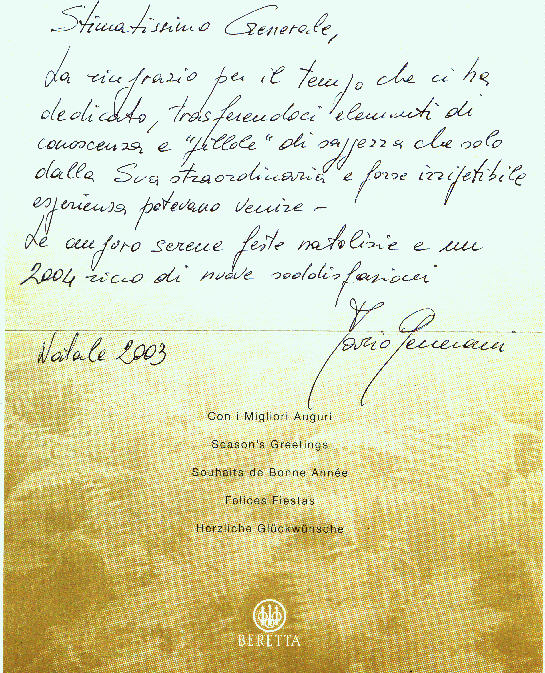 Stimatissimo Generale,
La ringrazio per il tempo che ci ha
dedicato, trasferendoci elementi di
conoscenza e "pillole" di saggezza che solo
dalla Sua straordinaria e forse irripetibile
esperienza potevano venire –
Le auguro serene feste natalizie e un
2004 ricco di nuove soddisfazioni
Natale 2003
Con i Migliori Auguri
Season's Greetings
Souhaits de Bonne Année
Felices Fiestas
Herzliche Glückwünsche
BERETTA